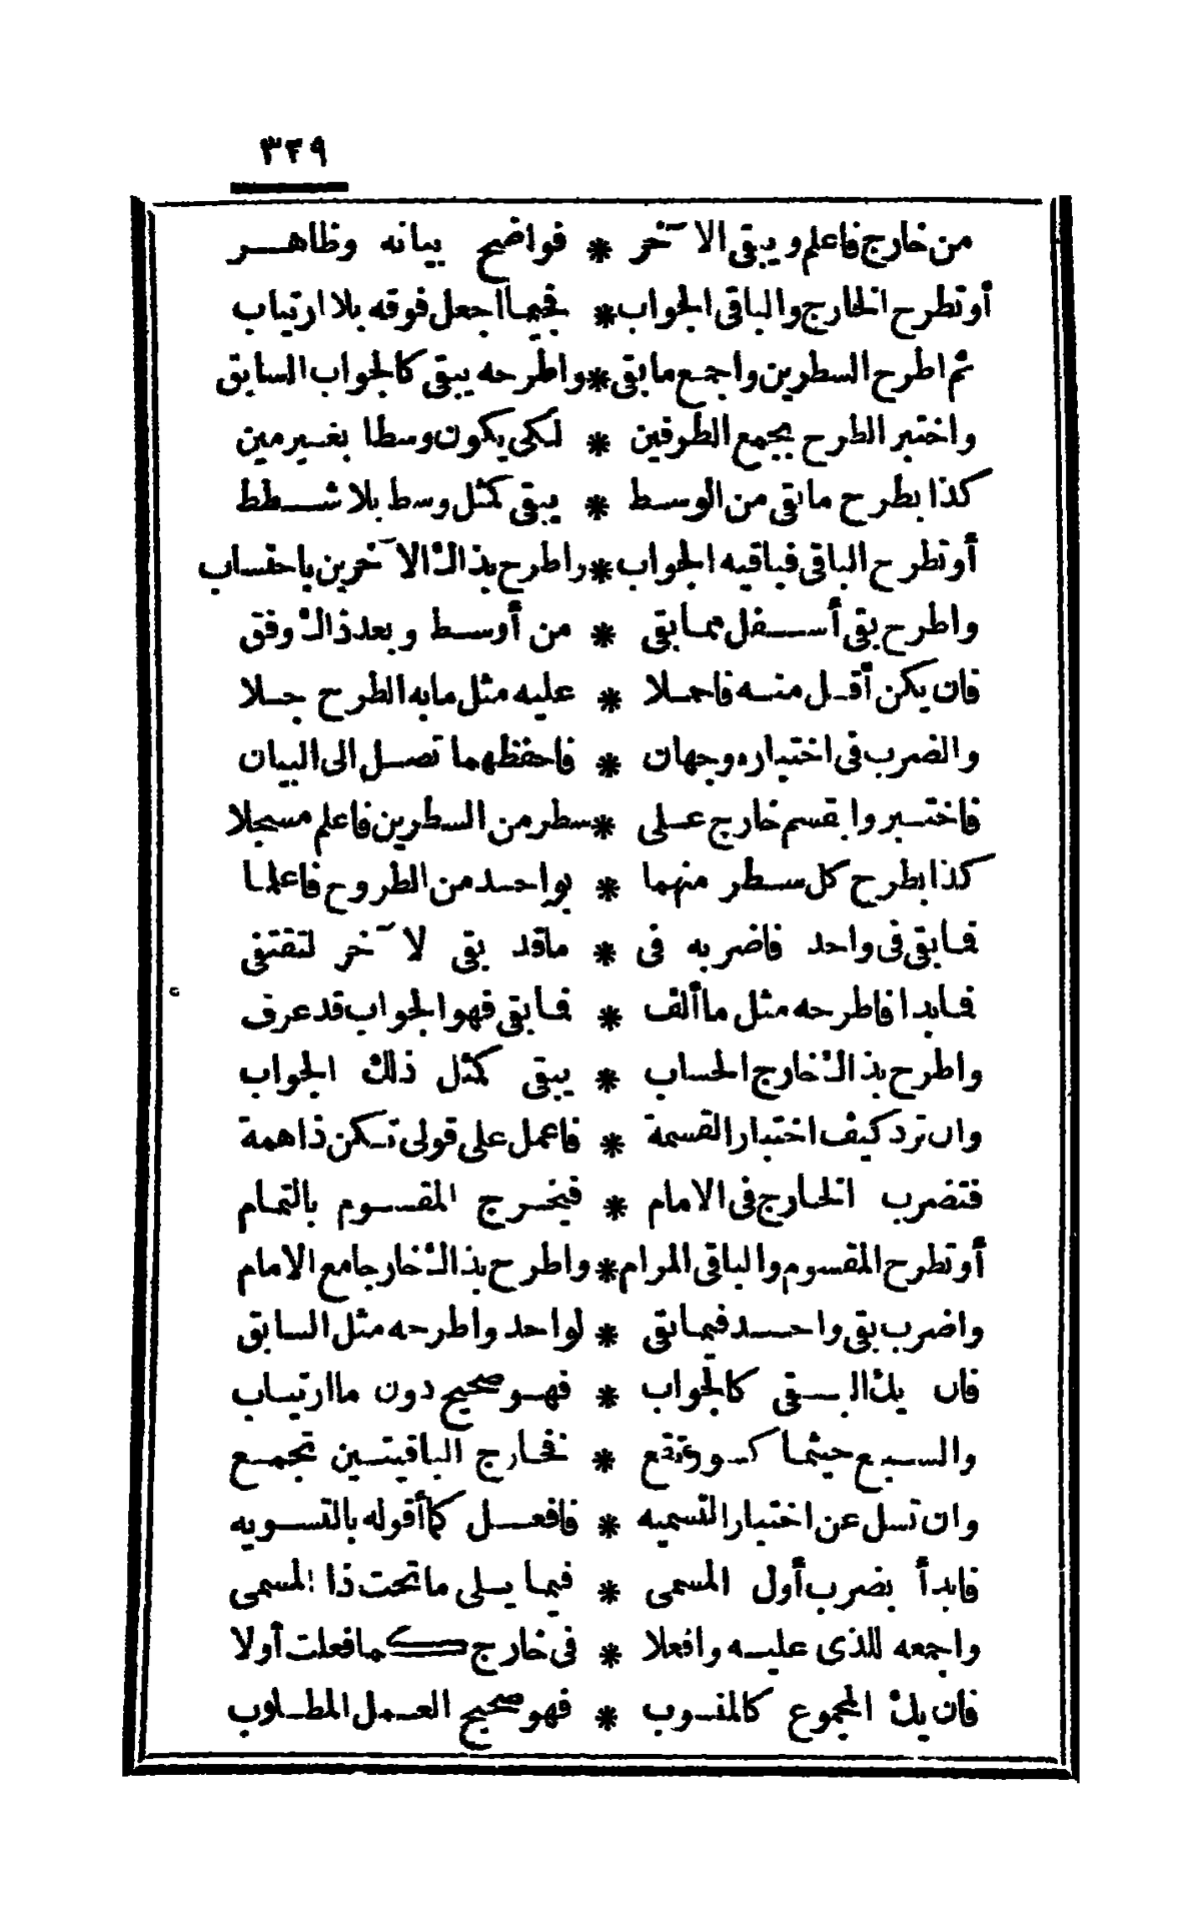 ٣٢٩
من خارج فاعلم ويبقى الآخر * فواضح بيانه وظاهر
أو تطرح الخارج والباقى الجواب * فجيما اجعل فوقه بلا ارتياب
ثم اطرح السطرين واجمع مابقى * واطرحه يبقى كالجواب السابق
واختبر الطرح بجمع الطرفين * لكى يكون وسطا بغير مين
كذا بطرح مابقى من الوسط * يبقى كمثل وسط بلا شطط
أو تطرح الباقى فباقيه الجواب * واطرح بذاك الآخرين باحتساب
واطرح بقى أسفل مما بقى * من أوسط وبعد ذاك وفق
فان يكن أقل منه فاحملا * عليه مثل مابه الطرح جلا
والضرب فى اختباره وجهان * فاحفظهما تصل الى البيان
فاختبر وا بقسم خارج على * سطر من السطرين فاعلم مسجلا
كذا بطرح كل سطر منهما * بواحد من الطروح فاعلما
فما بقى فى واحد فاضربه فى * ماقد بقى لآخر لتقتفى
فما بدا فاطرحه مثل ما ألف * فما بقى فهو الجواب قد عرف
واطرح بذاك خارج الحساب * يبقى كمثل ذلك الجواب
وان ترد كيف اختبار القسمة * فاعمل على قولى تكن ذا همة
فتضرب الخارج فى الامام * فيخرج المقسوم بالتمام
أو تطرح المقسوم والباقى المرام * واطرح بذاك خارجا مع الامام
واضرب بقى واحد فيما بقى * لواحد واطرحه مثل السابق
فان يك البقى كالجواب * فهو صحيح دون ما ارتياب
والسبع حيثما كسور تقع * فخارج الباقيتين تجمع
وان تسل عن اختبار التسميه * فافعل كما أقوله بالتسويه
فابدأ بضرب أول المسمى * فيما يلى ماتحت ذا المسمى
واجمعه للذى عليه وافعلا * فى خارج كما فعلت أولا
فان يك المجموع كالمنسوب * فهو صحيح العمل المطلوب